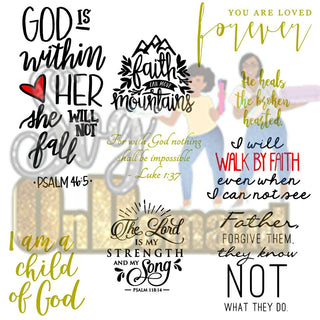 GOD IS
within
HER
she WILL
NOT
fall
• PSALM 46:5 •
faith
CAN MOVE
mountains
YOU ARE LOVED
forever
He heals
the broken
hearted.
For with God nothing
shall be impossible
- Luke 1:37
I will
WALK BY FAITH
even when
I can not see
I am a
child
of God
The Lord
IS MY
STRENGTH
AND MY
Song
PSALM 118:14
Father,
FORGIVE THEM,
they know
NOT
WHAT THEY DO.